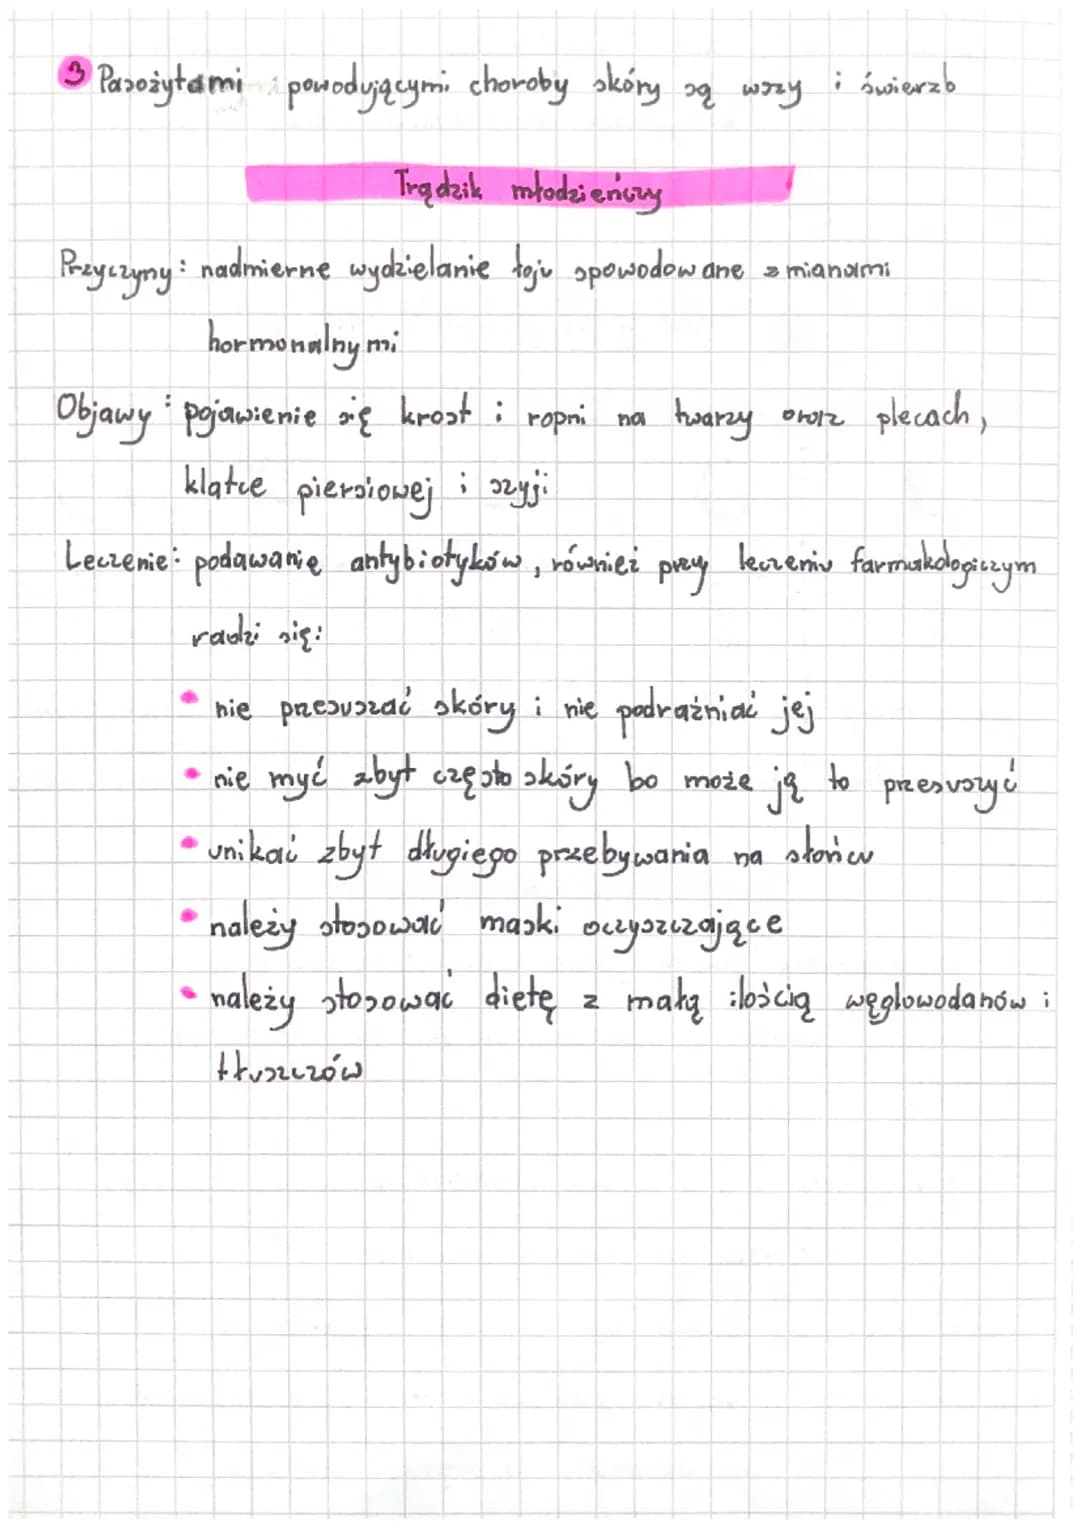 3 Pasożytami powodującymi choroby skóry są wszy i świerzb
Trądzik młodzieńczy
Przyczyny: nadmierne wydzielanie łoju spowodowane zmianami
hormonalnymi
Objawy: pojawienie się krost i ropni na twarzy oraz plecach,
klatce piersiowej i szyji
Leczenie: podawanię antybiotyków, również przy leczeniu farmakologiczym
radzi się:
• nie przesuszać skóry i nie podrażniać jej
• nie myć zbyt często skóry bo może ją to przesuszyć
• unikać zbyt długiego przebywania na słońcu
• należy stosować maski oczyszczające
• należy stosować dietę z małą ilością węglowodanów i
tłuszczów